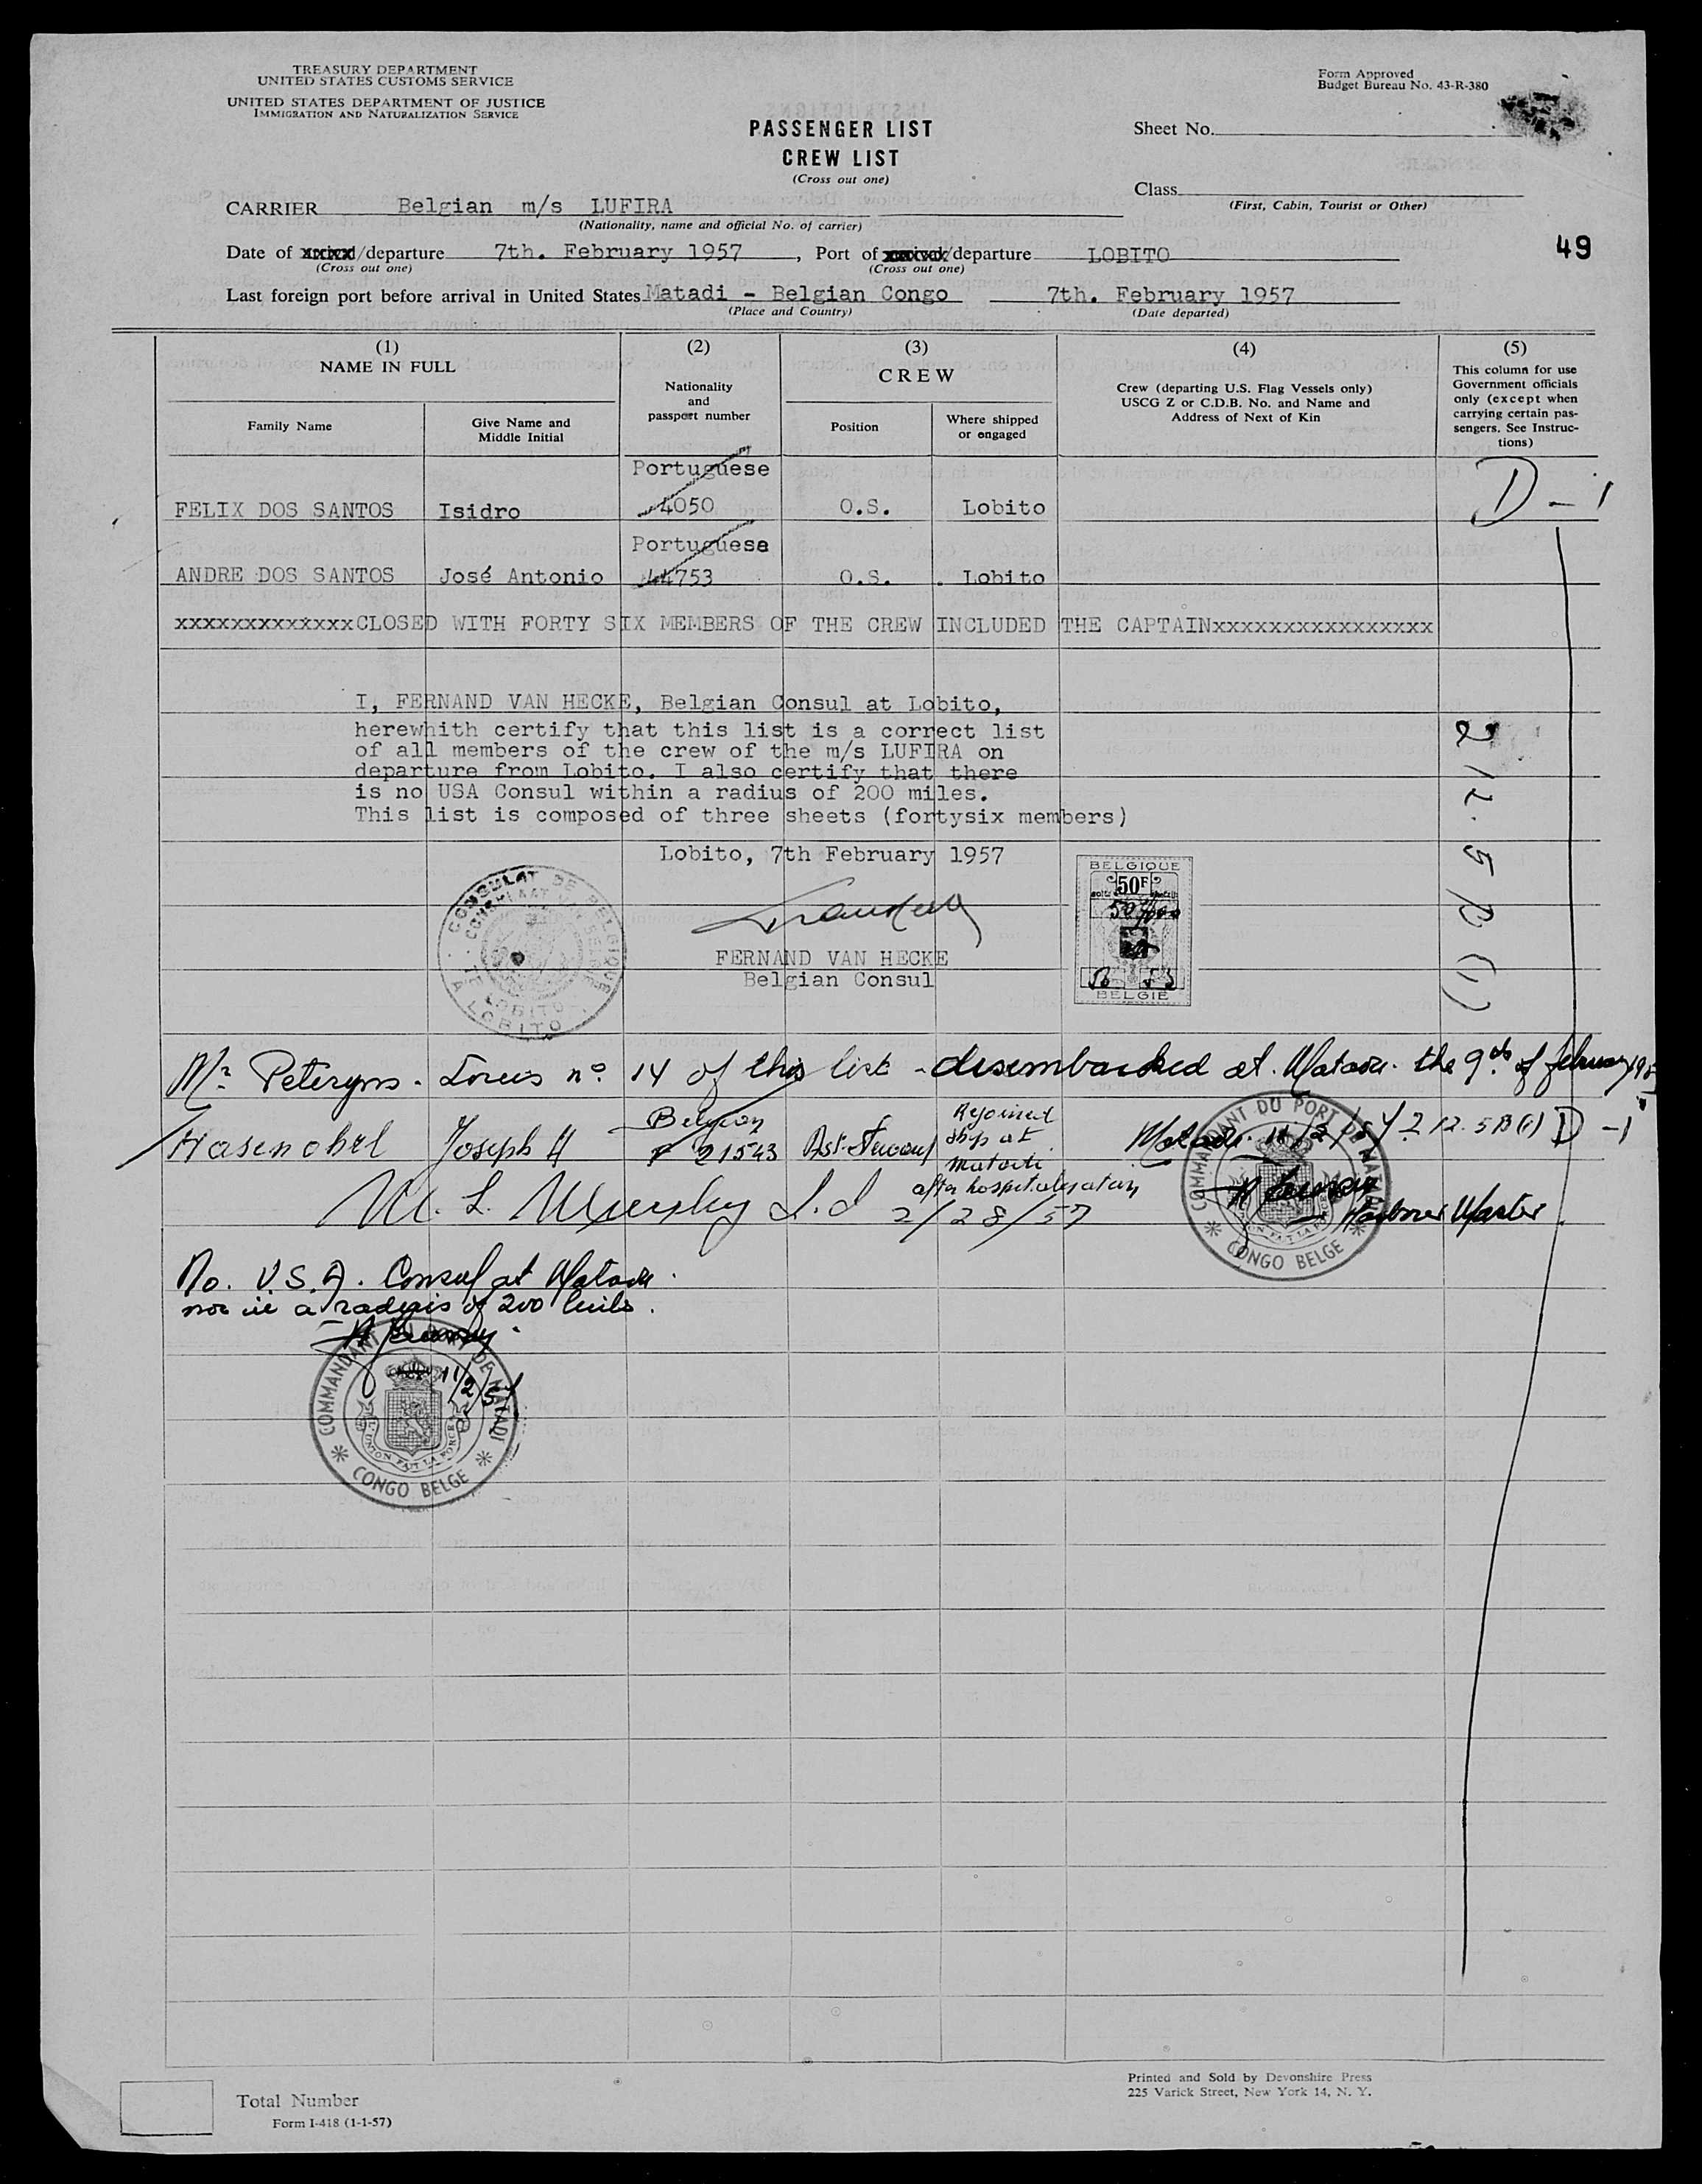 TREASURY DEPARTMENT
UNITED STATES CUSTOMS SERVICE
UNITED STATES DEPARTMENT OF JUSTICE
IMMIGRATION AND NATURALIZATION SERVICE
Form Approved
Budget Bureau No. 43-R-380
PASSENGER LIST
CREW LIST
(Cross out one)
Sheet No.
Class
(First, Cabin, Tourist or Other)
CARRIER Belgian m/s LUFIRA
(Nationality, name and official No. of carrier)
49
Date of /departure 7th. February 1957, Port of /departure LOBITO
(Cross out one) (Cross out one)
Last foreign port before arrival in United States Matadi - Belgian Congo 7th. February 1957
(Place and Country) (Date departed)
(1) (2) (3) (4) (5)
NAME IN FULL
Family Name
Give Name and Middle Initial
Nationality and passport number
CREW
Position
Where shipped or engaged
Crew (departing U.S. Flag Vessels only)
USCG Z or C.D.B. No. and Name and
Address of Next of Kin
This column for use
Government officials
only (except when
carrying certain pas-
sengers. See Instruc-
tions)
Portuguese
FELIX DOS SANTOS Isidro 4050 O.S. Lobito D - 1
Portuguese
ANDRE DOS SANTOS José Antonio 44753 O.S. Lobito
xxxxxxxxxxxxxCLOSED WITH FORTY SIX MEMBERS OF THE CREW INCLUDED THE CAPTAINxxxxxxxxxxxxxxxx
I, FERNAND VAN HECKE, Belgian Consul at Lobito,
herewhith certify that this list is a correct list
of all members of the crew of the m/s LUFIRA on
departure from Lobito. I also certify that there
is no USA Consul within a radius of 200 miles.
This list is composed of three sheets (fortysix members)
212.5 B (1)
Lobito, 7th February 1957
CONSULAT DE BELGIQUE
A LOBITO
BELGIQUE
50F
BELGIË
FERNAND VAN HECKE
Belgian Consul
Mr Peteryns. Louis no. 14 of this list - disembarked at Matadi. the 9th of february 195
Hasenohrl Joseph H Belgian 21543 Ast. Steward Rejoined
ship at
Matadi
after hospitalization
Matadi. 11/2/57 212.5B(1) D - 1
2/28/57
Harbour Master
COMMANDANT DU PORT DE MATADI
CONGO BELGE
No. U.S.A. Consul at Matadi.
nor in a radius of 200 miles.
11/2/57
COMMANDANT DU PORT DE MATADI
L'UNION FAIT LA FORCE
CONGO BELGE
Total Number
Form I-418 (1-1-57)
Printed and Sold by Devonshire Press
225 Varick Street, New York 14, N. Y.